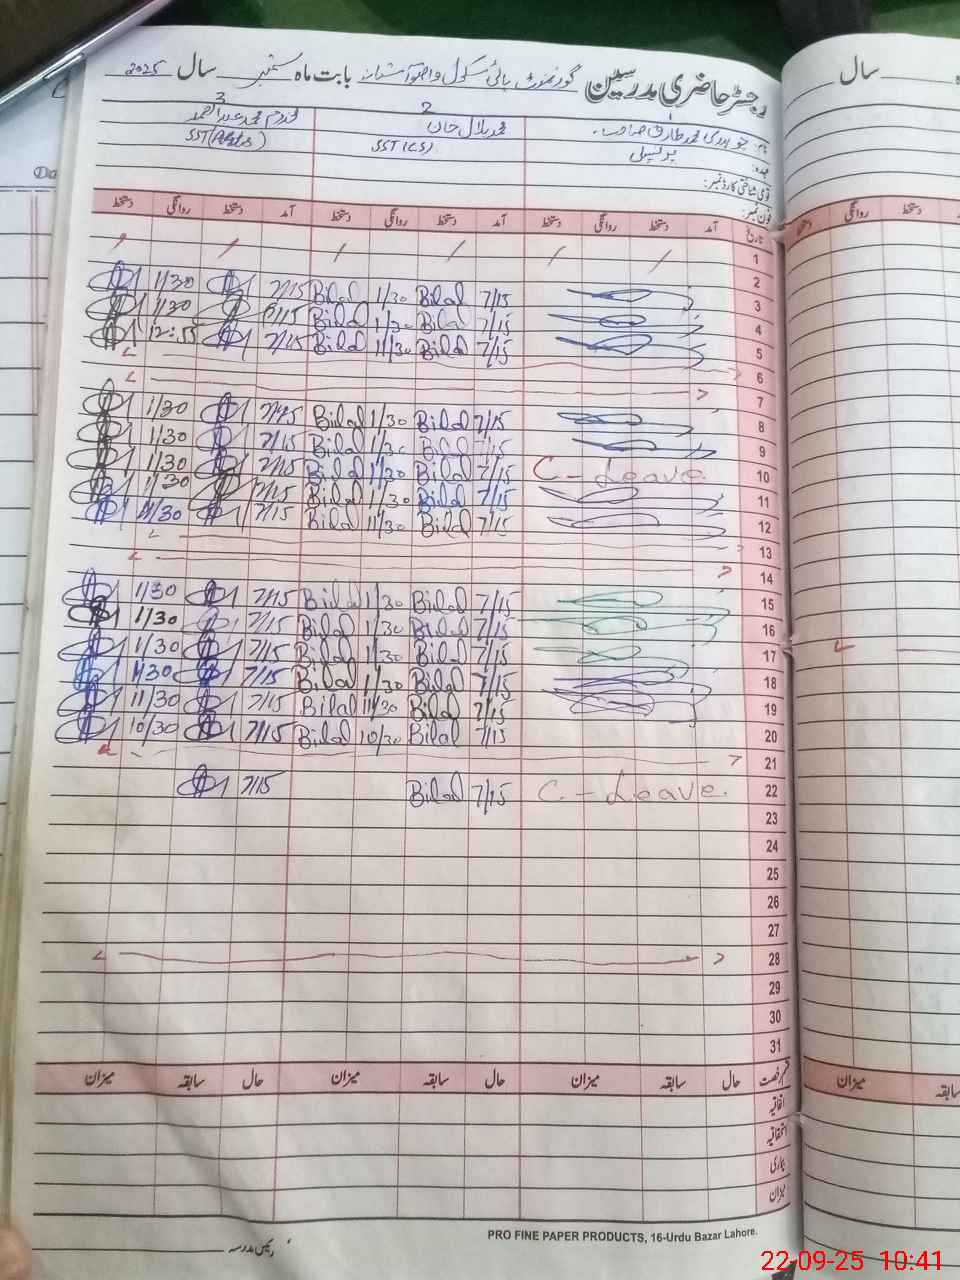 رجسٹر حاضری مدرسین گورنمنٹ ہائی سکول بابت ماہ ستمبر سال 2025
سال
1 2 3
نام: چوہدری محمد طارق صاحب محمد بلال خان
عہدہ: پرنسپل SST (CS) SST (Arts)
قومی شناختی کارڈ نمبر:
فون نمبر:
تاریخ آمد دستخط روانگی دستخط آمد دستخط روانگی دستخط آمد دستخط روانگی دستخط
روانگی دستخط
1
2 7/15 Bilal 1/30 Bilal 7/15 1/30
3 7/15 Bilal 1/30 Bilal 7/15 1/30
4 7/15 Bilal 11/30 Bilal 7/15 12:55
5
6
7
8 7/15 Bilal 1/30 Bilal 7/15 1/30
9 7/15 Bilal 1/30 Bilal 7/15 1/30
10 C-Leave 7/15 Bilal 1/30 Bilal 7/15 1/30
11 7/15 Bilal 1/30 Bilal 7/15 1/30
12 7/15 Bilal 11/30 Bilal 7/15 11/30
13
14
15 7/15 Bilal 1/30 Bilal 7/15 1/30
16 7/15 Bilal 1/30 Bilal 7/15 1/30
17 7/15 Bilal 1/30 Bilal 7/15 1/30
18 7/15 Bilal 1/30 Bilal 7/15 1/30
19 7/15 Bilal 11/30 Bilal 7/15 11/30
20 7/15 Bilal 10/30 Bilal 7/15 10/30
21
22 C-Leave. 7/15 Bilal 7/15
23
24
25
26
27
28
29
30
31
قسم رخصت حال سابقہ میزان حال سابقہ میزان حال سابقہ میزان
میزان سابقہ
اتفاقیہ
استحقاقیہ
بیماری
میزان
رئیس مدرسہ
PRO FINE PAPER PRODUCTS, 16-Urdu Bazar Lahore.
22-09-25 10:41